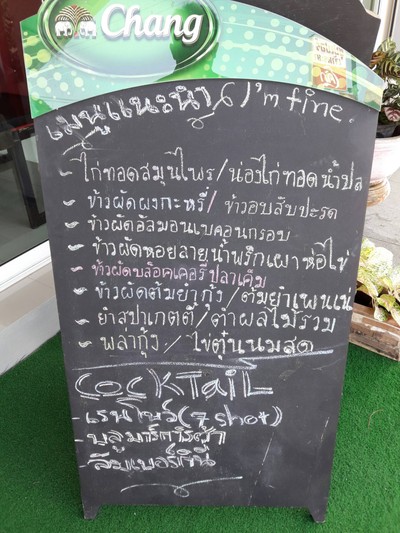 Chang
เมนูแนะนำ I'm fine.
- ไก่ทอดสมุนไพร/น่องไก่ทอดน้ำปลา
- ข้าวผัดผงกะหรี่/ ข้าวอบสับปะรด
- ข้าวผัดอัลมอนเบคอนกรอบ
- ข้าวผัดหอยลายน้ำพริกเผาห่อไข่
- ข้าวผัดบล็อคเคอรี่ปลาเค็ม
- ข้าวผัดต้มยำกุ้ง/ต้มยำเพนเน่
- ยำสปาเกตตี้/ตำผลไม้รวม
- พล่ากุ้ง / ไข่ตุ๋นนมสด
COCKTaiL
- เรนโบว์(7 shot)
- บลูมาร์การิต้า
- ลิ้บเบอร์เซินี่